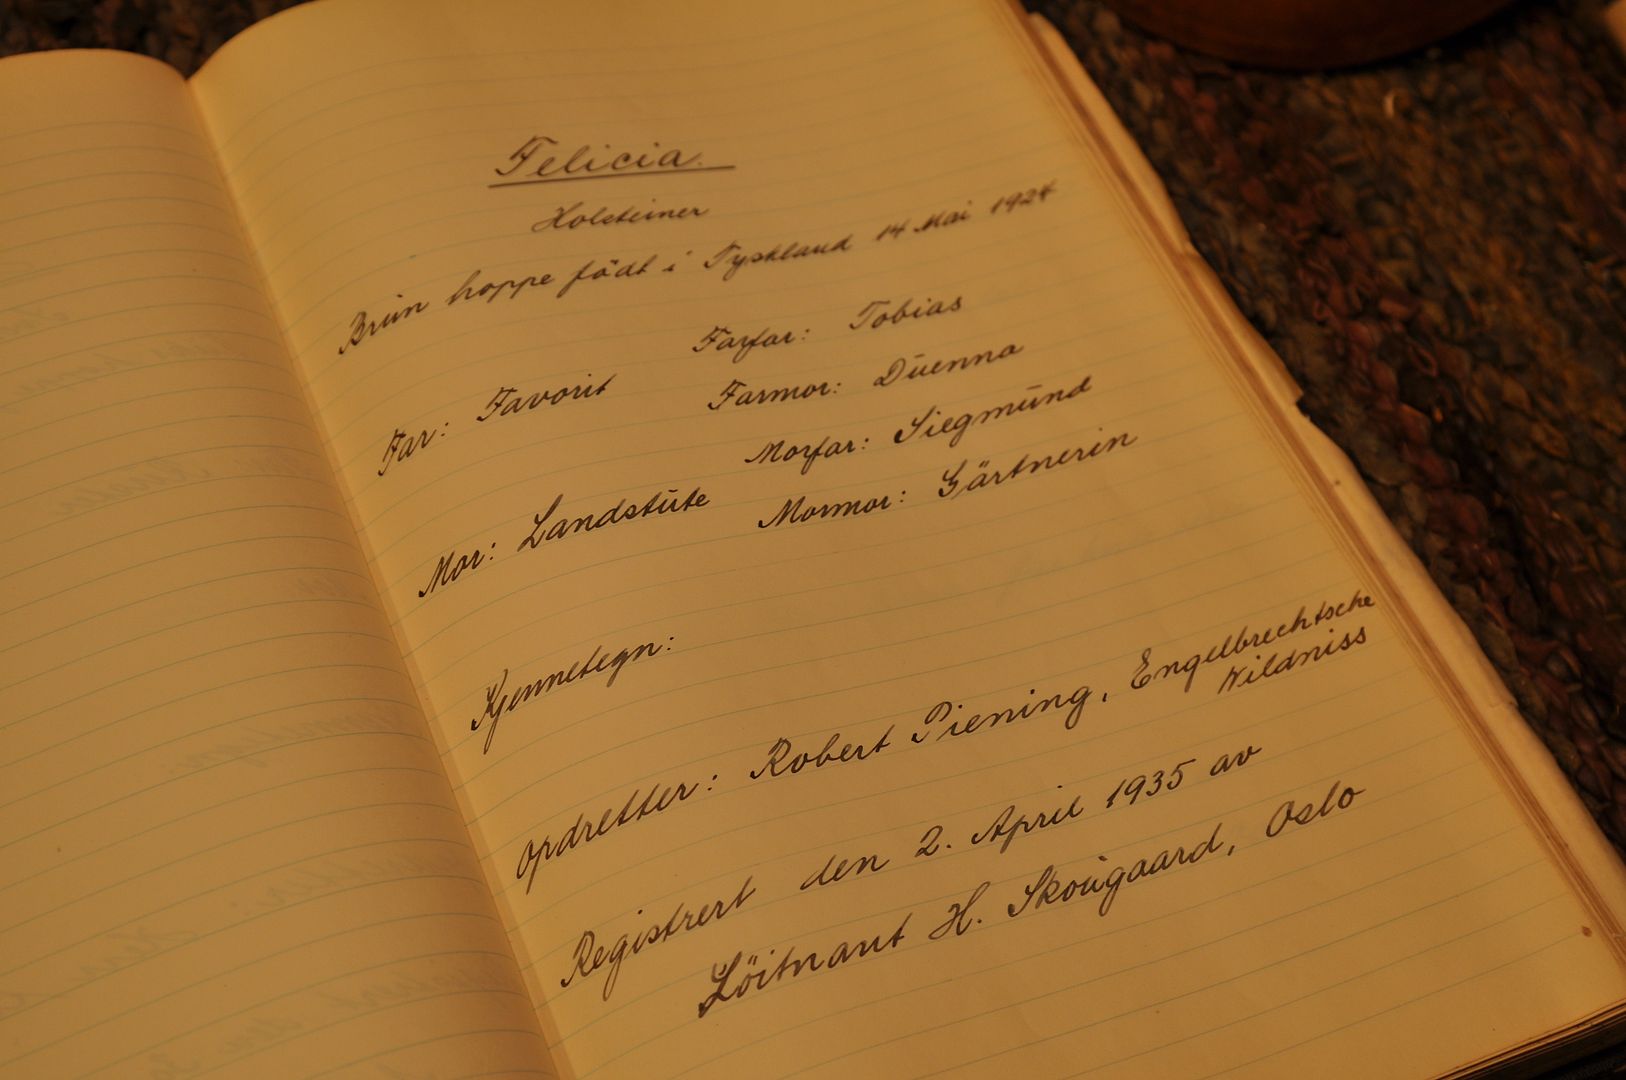 Felicia.
Holsteiner
Brun hoppe födt i Tyskland 14 Mai 1924
Farfar: Tobias
Far: Favorit
Farmor: Duenna
Morfar: Siegmund
Mor: Landstute
Mormor: Gärtnerin
Kjennetegn:
Opdretter: Robert Piening, Engelbrechtsche
Wildniss
Registrert den 2. April 1935 av
Löitnant H. Skougaard, Oslo